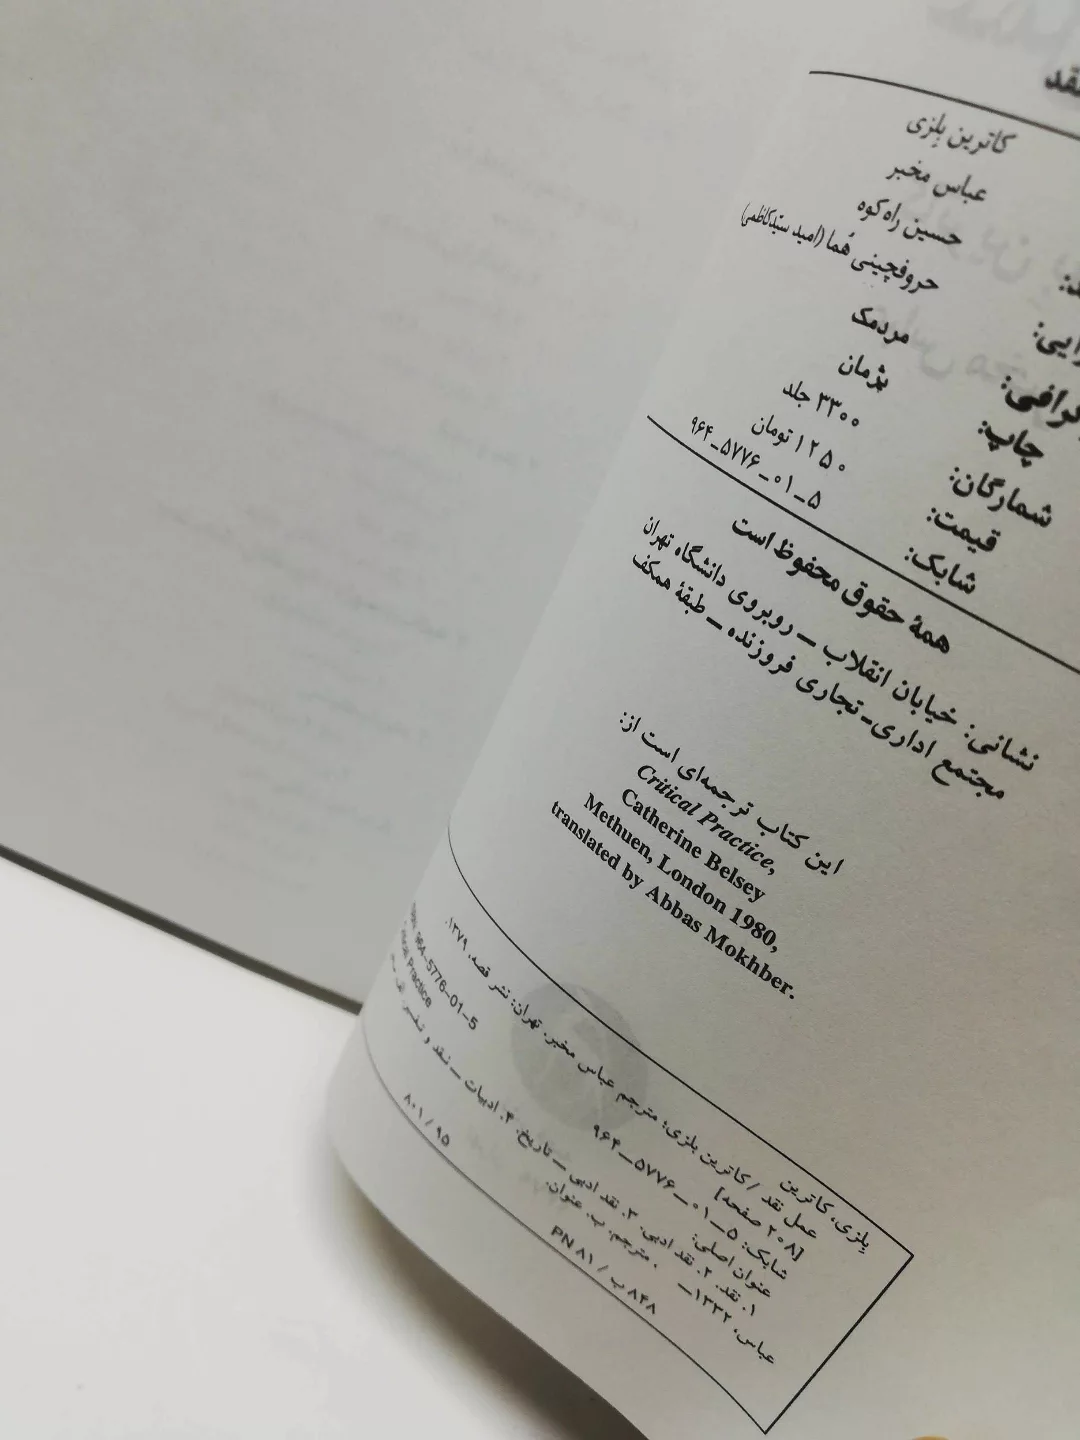 نقد
کاترین بِلزی
عباس مخبر
حسین راه‌کوه
حروفچینی هُما (امید سیّدکاظمی)
مردمک
چاپ: پژمان
شمارگان: ۳۳۰۰ جلد
قیمت: ۱۲۵۰ تومان
شابک: ۵ــ۰۱ــ۵۷۷۶ــ۹۶۴
همهٔ حقوق محفوظ است
نشانی: خیابان انقلاب ــ روبروی دانشگاه تهران
مجتمع اداری-تجاری فروزنده ــ طبقهٔ همکف
این کتاب ترجمه‌ای است از:
Critical Practice,
Catherine Belsey
Methuen, London 1980,
translated by Abbas Mokhber.
بِلزی، کاترین
عمل نقد / کاترین بلزی؛ مترجم عباس مخبر. تهران: نشر قصه، ۱۳۷۹.
[۲۰۸ صفحه]
شابک: ۵ــ۰۱ــ۵۷۷۶ــ۹۶۴ 964-5776-01-5
عنوان اصلی: Practice
۱. نقد. ۲. نقد ادبی. ۳. نقد ادبی ــ تاریخ. ۴. ادبیات ــ نقد و تفسیر. الف.
عباس، ۱۳۳۲ــ . مترجم. ب. عنوان.
۸۰۱/۹۵ PN ۸۱/ب ۸۴۸